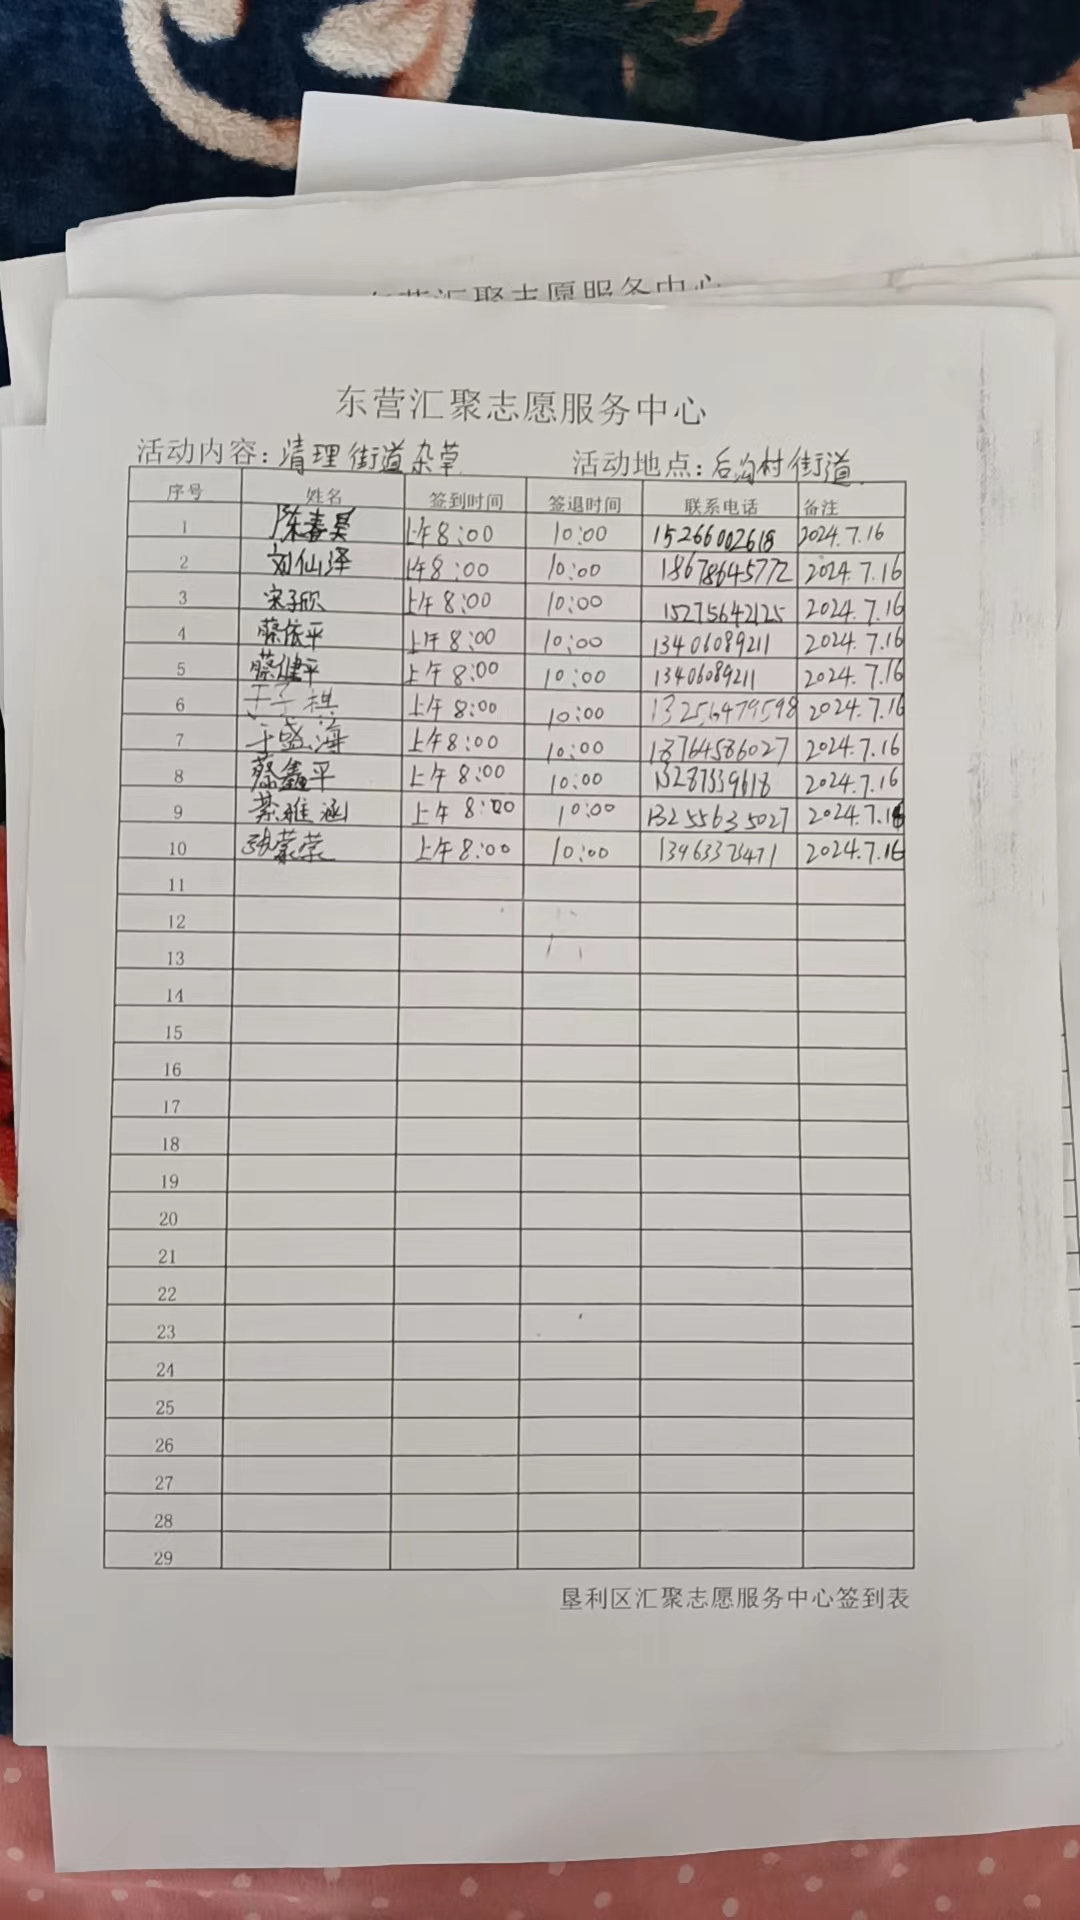 东营汇聚志愿服务中心
东营汇聚志愿服务中心
活动内容：清理街道杂草 活动地点：后沟村街道
序号 姓名 签到时间 签退时间 联系电话 备注
1 陈春昊 上午8:00 10:00 15266002618 2024.7.16
2 刘仙泽 上午8:00 10:00 18678645772 2024.7.16
3 宋子欣 上午8:00 10:00 15275642125 2024.7.16
4 蔡依平 上午8:00 10:00 13406089211 2024.7.16
5 蔡健平 上午8:00 10:00 13406089211 2024.7.16
6 王子棋 上午8:00 10:00 13256479598 2024.7.16
7 于盛海 上午8:00 10:00 18764586027 2024.7.16
8 蔡鑫平 上午8:00 10:00 13287339618 2024.7.16
9 綦雅涵 上午8:00 10:00 13255635027 2024.7.16
10 张蒙荣 上午8:00 10:00 2024.7.16
11
12
13
14
15
16
17
18
19
20
21
22
23
24
25
26
27
28
29
垦利区汇聚志愿服务中心签到表